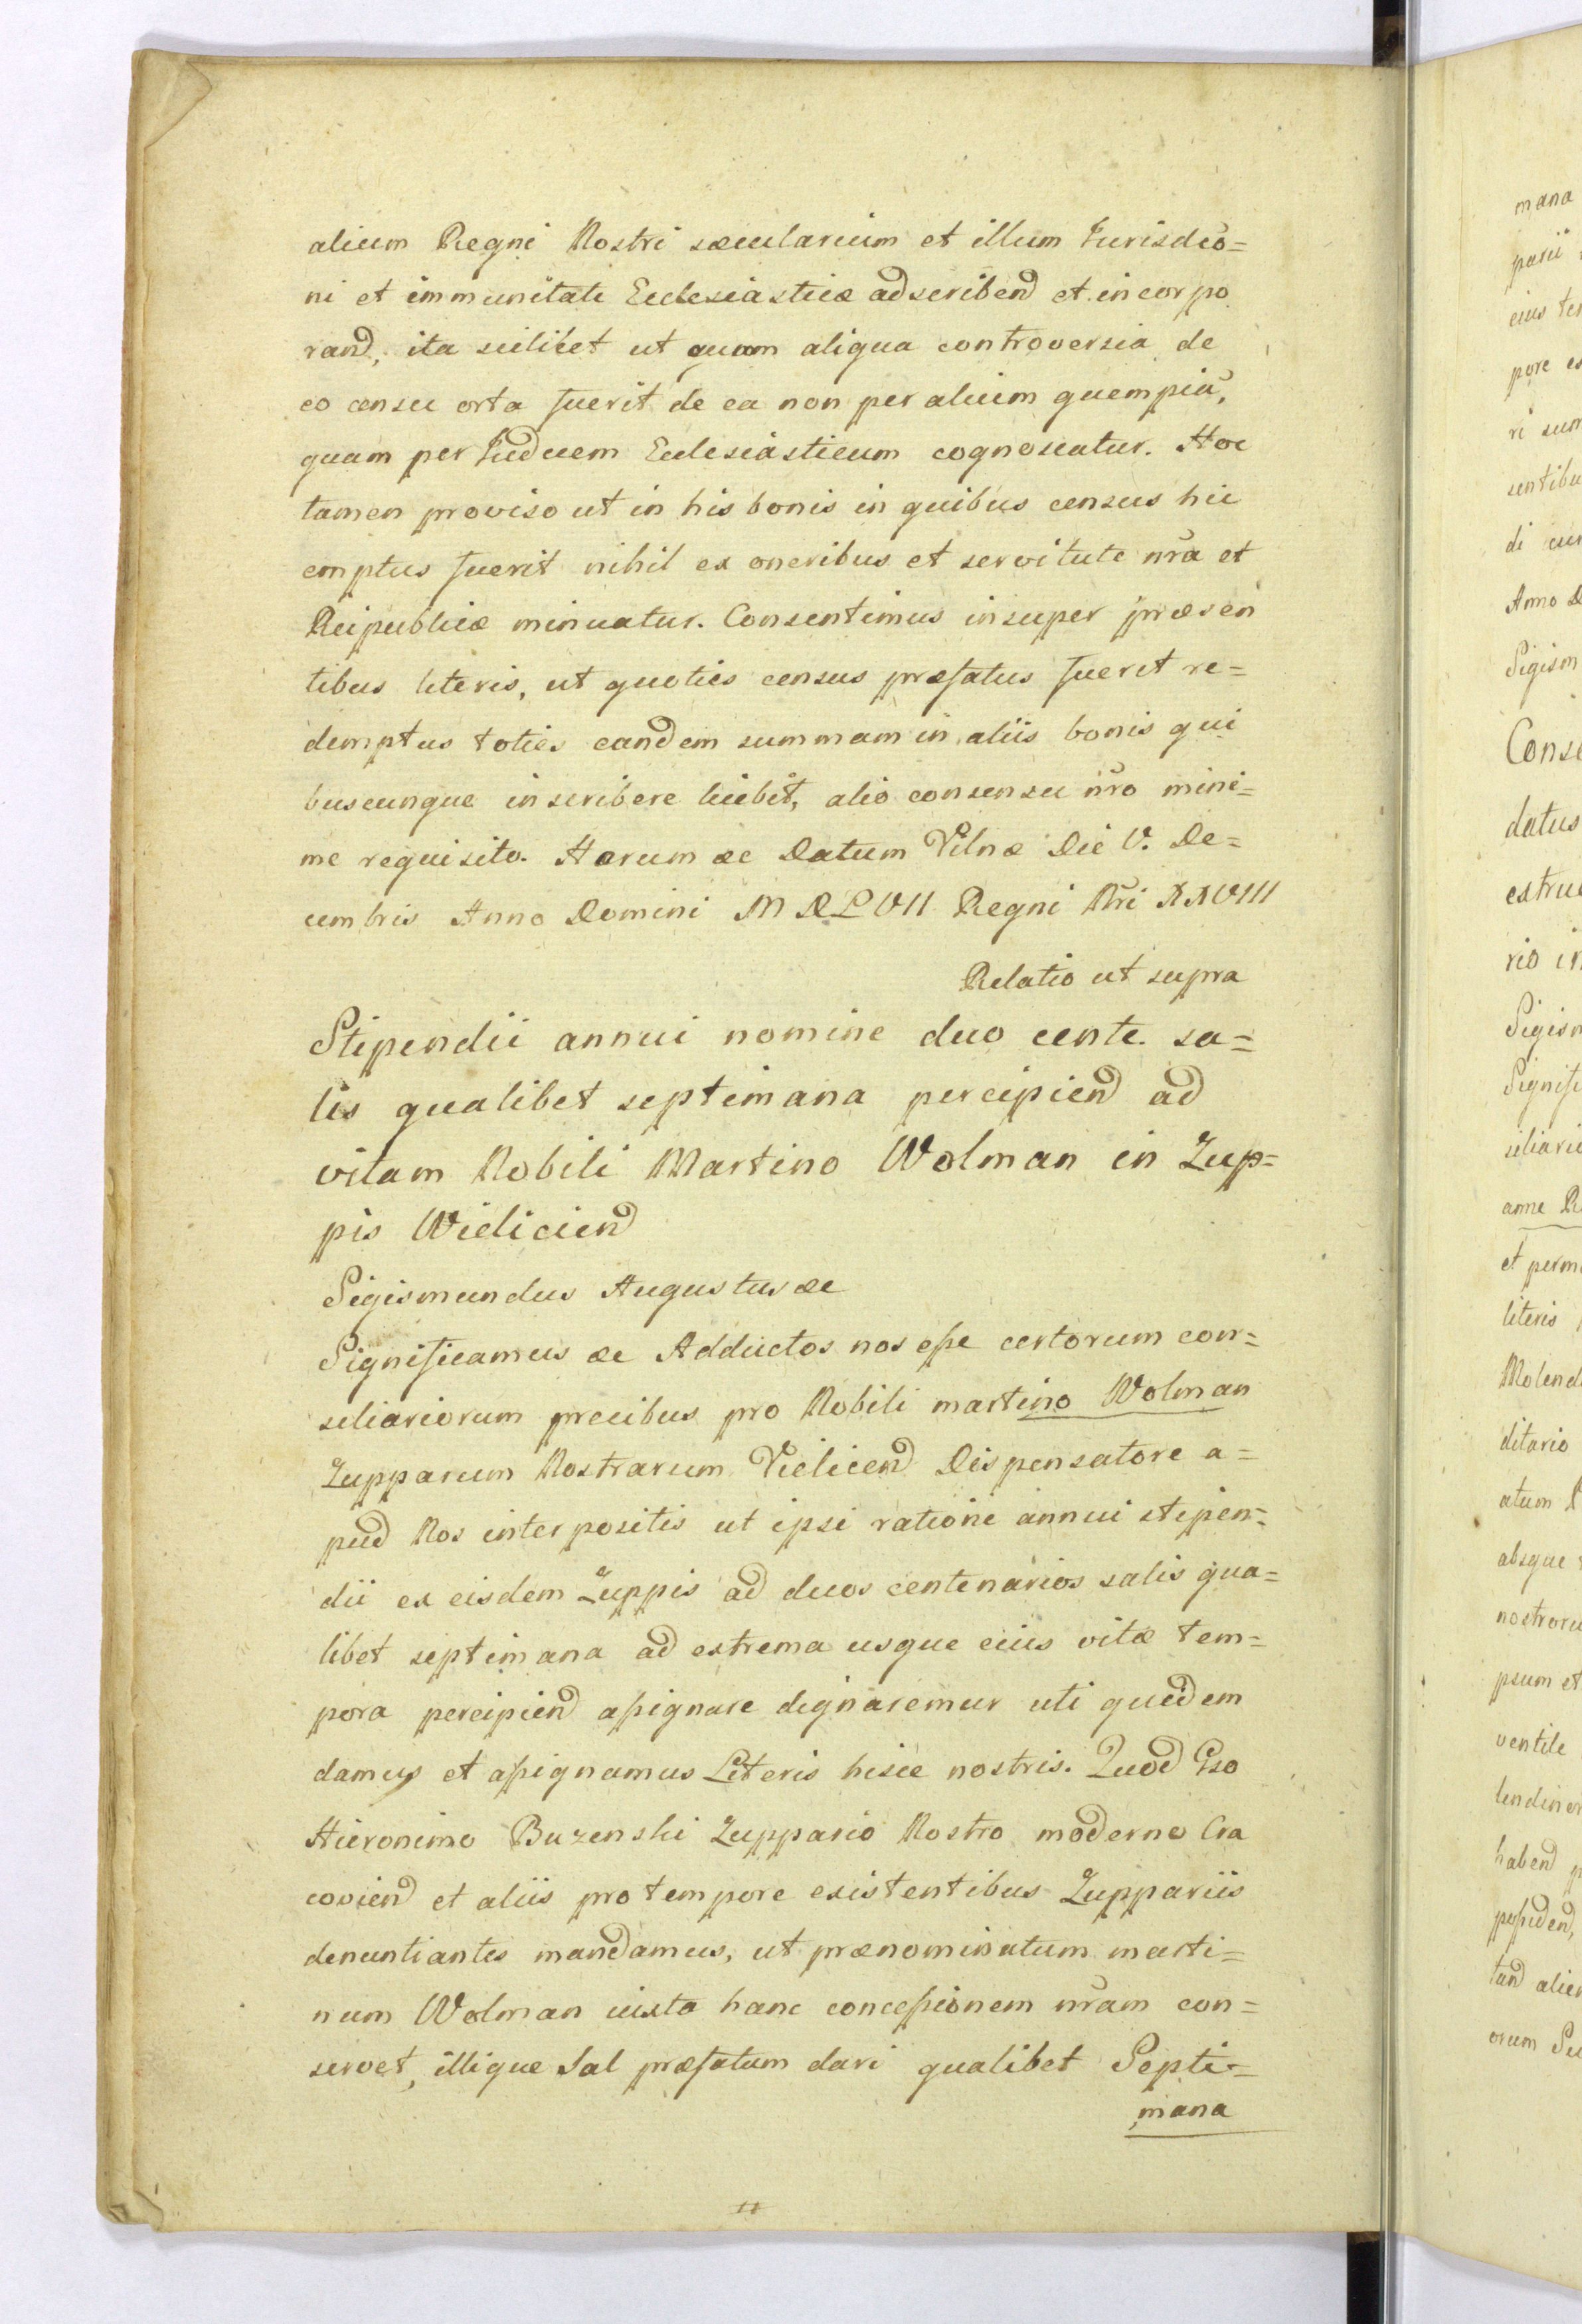 alium Regni Nostri sæcularium et illum Jurisdcõ=
ni et immunitati Ecclesiasticæ adscribend et incorpo
rand, ita scilicet ut quom aliqua controversia de
eo censu orta fuerit de ea non per alium quempiã,
quam per Judicem Ecclesiasticum cognoscatur. Hoc
tamen proviso ut in his bonis in quibus census hic
emptus fuerit nihil ex oneribus et servitute nrã et
Reipublicæ minuatur. Consentimus insuper præsen
tibus literis, ut quoties census præfatus fuerit re=
demptus toties eandem summam in aliis bonis qui
buscunque inscribere licebit, alio consensu nrõ mini=
me requisito. Harum æc Datum Vilnæ Die V. De=
cembris Anno Domini MDLVII Regni Nri XXVIII
Relatio ut supra
Stipendii annui nomine duo cente. sa=
lis qualibet septimana percipiend ad
vitam Nobili Martino Wolman in Zup=
pis Wieliciend
Sigismundus Augustus æc
Significamus æc Adductos nos esse certorum con=
siliariorum precibus pro Nobili martino Wolman
Zupparum Nostrarum Vielicend Dispensatore a=
pud Nos interpositis ut ipsi ratione annui stipen=
dii ex eisdem Zuppis ad duos centenarios salis qua=
libet septimana ad extrema usque eius vitæ tem=
pora percipiend assignare dignaremur uti quidem
damus et assignamus Literis hisce nostris. Quod Gso
Hieronimo Buzenski Zuppario Nostro moderno Cra
coviend et aliis pro tempore existentibus Zuppariis
denuntiantes mandamus, ut prænominatum marti=
num Wolman iuxta hanc concessionem nrãm con=
servet, illique Sal præfatum dari qualibet Septi=
mana
11
mana
parii
eius te
pore e
ri sum
sentibu
di cui
Anno D
Sigism
Conse
datus
extru
rio in
Sigism
Signifi
siliario
anne R
et perm
literis
Molend
ditario
atum
absque
nostroru
psum et
ventile
lendinor
habend p
possidend,
tand alie
orum Su